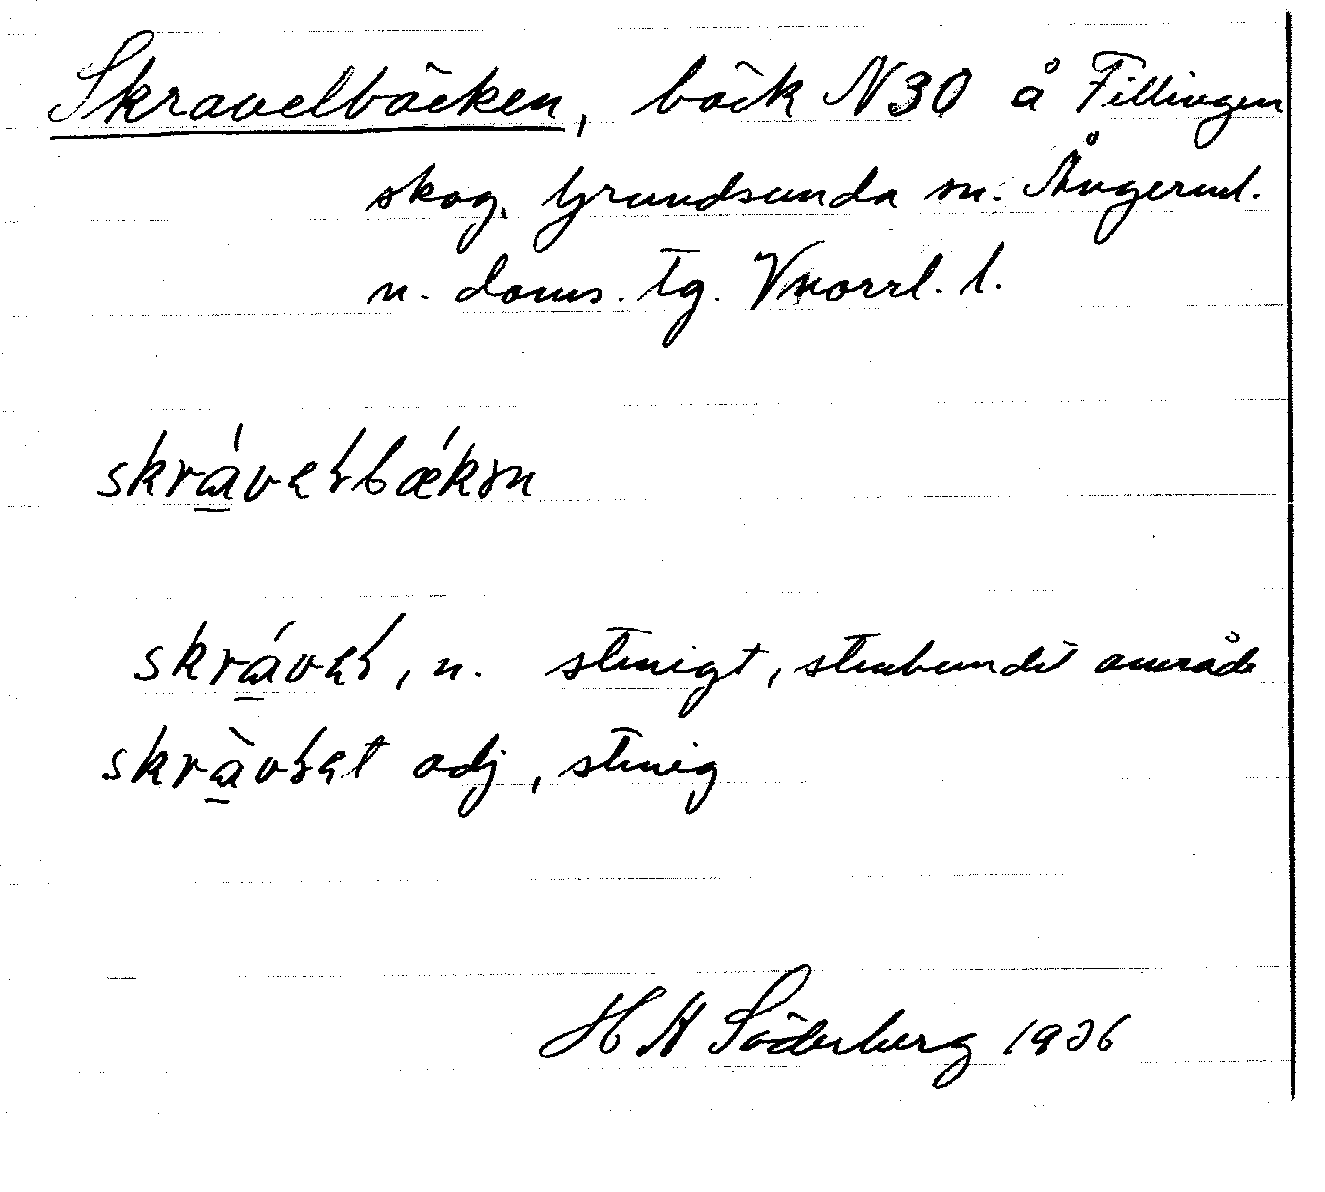 Skravelbäcken, bäck N30 å Fillingen
skog, Grundsunda sn. Ångerml.
n. doms. tg. Vnorrl. l.
skrávełbækən
skrávəł, n. stenigt, stenbundet område
skràvłət adj, stenig
H A Söderberg 1936